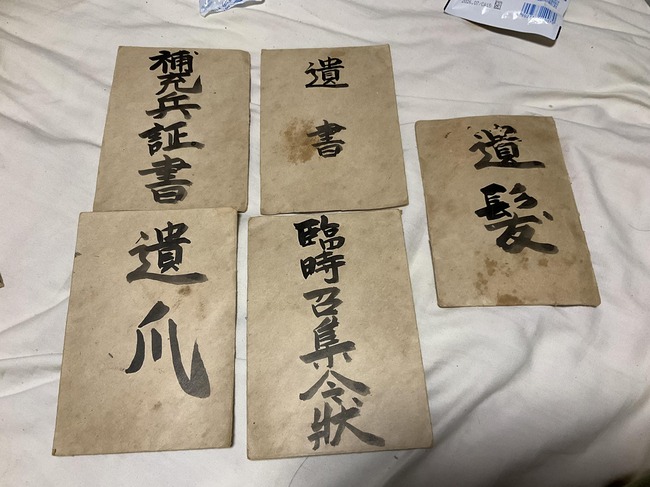 補充兵証書
遺書
遺髪
遺爪
臨時召集令状